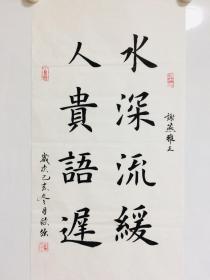 谢燕雅正
水深流緩
人貴語遲
歲次己亥冬月